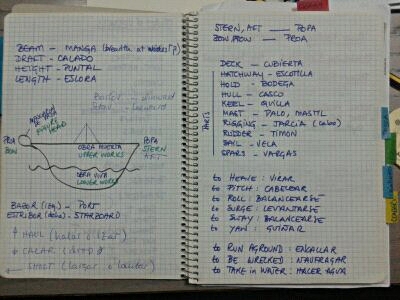 BEAM - MANGA (breadth at widest p)
DRAFT - CALADO
HEIGHT - PUNTAL
LENGTH - ESLORA
MASCARÓN
DE PROA
FIGURE
HEAD
PROA
BOW
POPA
STERN
AFT
OBRA MUERTA
UPPER WORKS
OBRA VIVA
LOWER WORKS
BABOR (izq) - PORT
ESTRIBOR (dcha) - STARBOARD
HAUL (halar o izar)
CALAR
SHOOT (largar o
STERN, AFT — POPA
BOW, PROW — PROA
Parts
DECK - CUBIERTA
HATCHWAY - ESCOTILLA
HOLD - BODEGA
HULL - CASCO
KEEL - QUILLA
MAST - PALO, MASTIL
RIGGING - JARCIA (cabos)
RUDDER - TIMON
SAIL - VELA
SPARS - VARGAS
to HEAVE : VIRAR
to PITCH : CABECEAR
to ROLL : BALANCEARSE
to SURGE : LEVANTARSE
to SWAY : BALANCEARSE
to YAW : GUIÑAR
to RUN AGROUND : ENCALLAR
to BE WRECKED : NAUFRAGAR
to TAKE in WATER : HACER AGUA